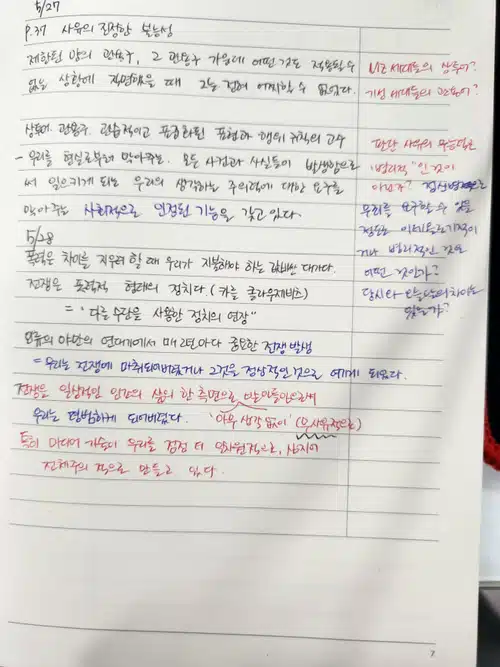 5/27
P.37 사유의 진정한 불능성
제한된 양의 관용구, 그 관용구 가운데 어떤 것도 적용될 수
없는 상황에 직면했을 때 그는 전혀 어찌할 수 없었다.
MZ 세대들의 상투어?
기성 세대들의 관용어?
상투어, 관용구, 관습적이고 표준화된 표현과 행위 규칙의 고수
- 우리를 현실로부터 막아주는, 모든 사건과 사실들이 발생함으로
써 일으키게 되는 우리의 생각하는 주의력에 대한 요구를
막아주는 사회적으로 인정된 기능을 갖고 있다.
판단 사유의 무능력은
"병리적"인 것이
아닌가? 정신병적으로
무죄를 요구할 수 있을
정도는
거나 병리적인 것은
어떤 것인가?
당시와 오늘날의 차이는
있는가?
5/28
폭력은 차이를 지우려 할 때 우리가 지불해야 하는 값비싼 대가다.
전쟁은 폭력적 형태의 정치다. (카를 클라우제비츠)
= "다른 수단을 사용한 정치의 연장"
인류의 야만의 연대기에서 매 2년마다 중요한 전쟁 발생
= 우리는 전쟁에 마취되어버렸거나 그것을 정상적인 것으로 여기게 되었다.
전쟁은 일상적인 인간의 삶의 한 측면으로 받아들임으로써
우리는 평범하게 되어버렸다. '아무 생각 없이' (무사유적으로)
특히 미디어 기술이 우리를 점점 더 일차원적으로, 심지어
전체주의적으로 만들고 있다.
7